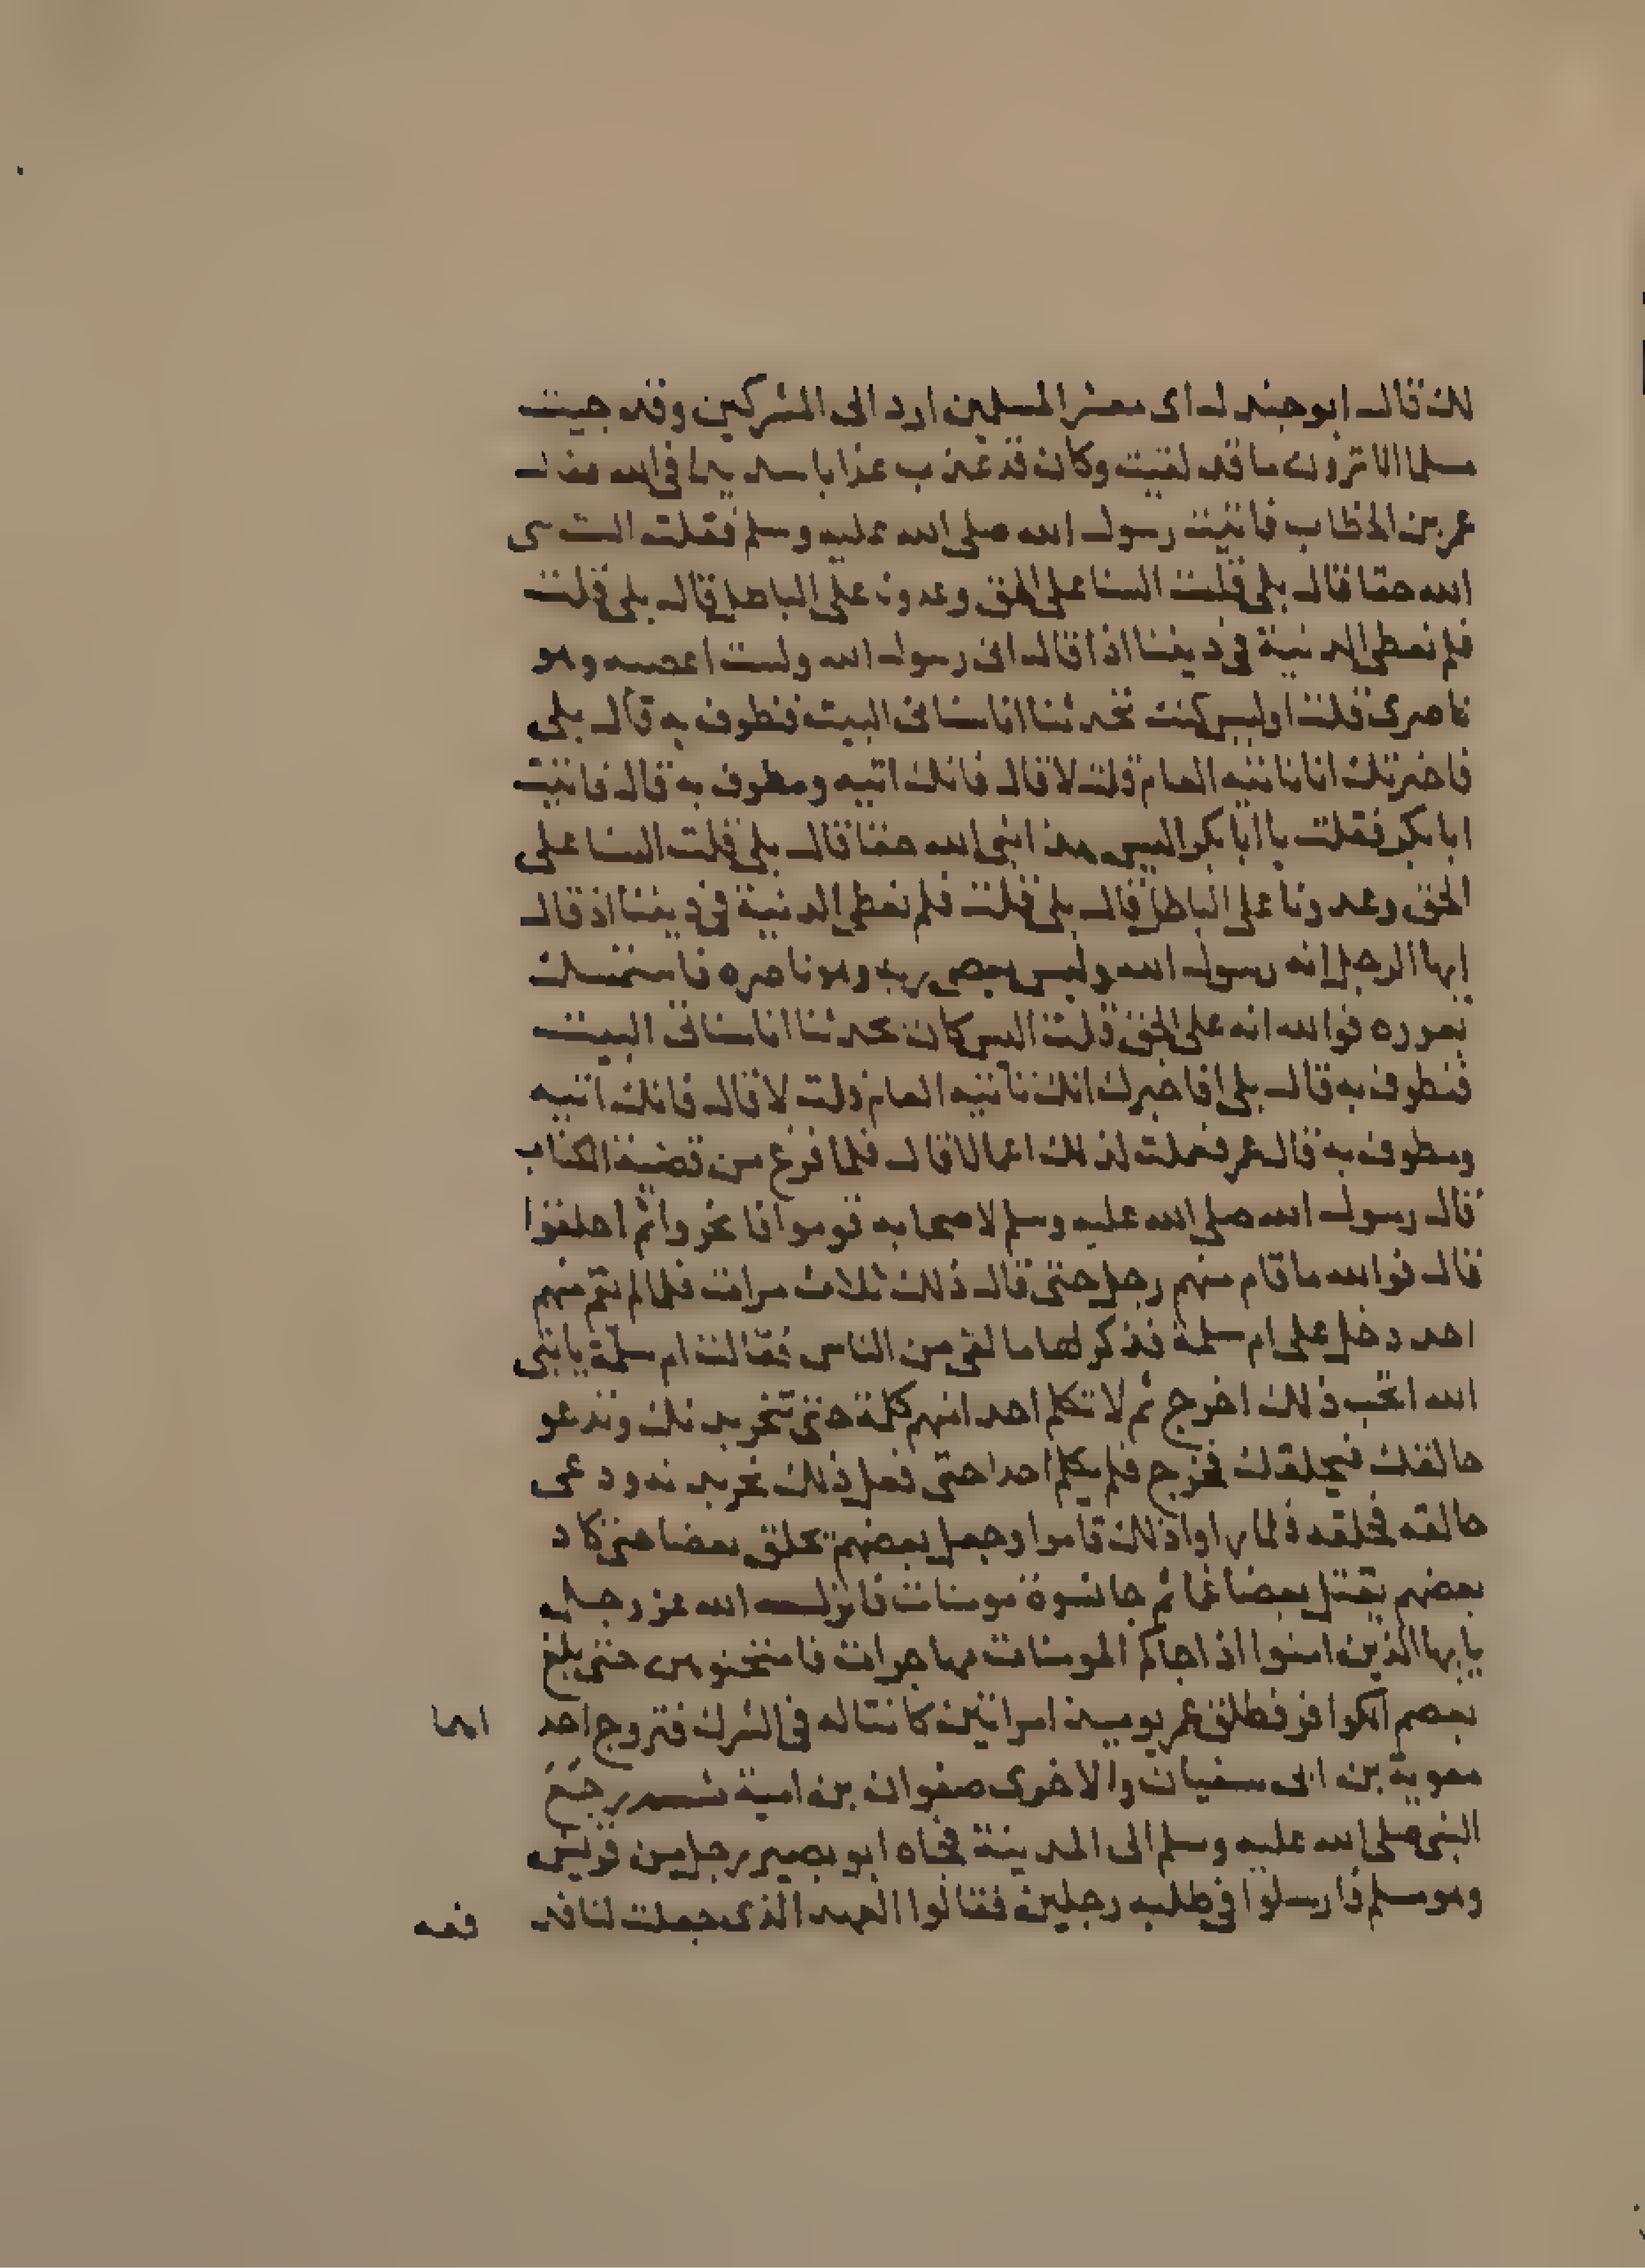 لك قال ابو جندل اى معشر المسلمين ارد الى المشركين وقد جيت
مسلما الا ترون ما قد لقيت وكان قد عذب عذابا سديدا فى الله فقال
عمر بن الخطاب فاتيت رسول الله صلى الله عليه وسلم فقلت الست نبى
الله حقا قال بلى قلت السنا على الحق وعدونا على الباطل قال بلى قلت
فلم نعطى الدنية فى ديننا اذا قال انى رسول الله ولست اعصيه وهو
ناصرى قلت اوليس كنت تحدثنا انا سناتى البيت فنطوف به قال بلى
فاخبرتك انا ناتيه العام قلت لا قال فانك اتيه ومطوف به قال فاتيت
ابا بكر فقلت يا ابا بكر اليس هذا نبى الله حقا قال بلى قلت السنا على
الحق وعدونا على الباطل قال بلى قلت فلم نعطى الدنية فى ديننا اذ قال
ايها الرجل انه رسول الله وليس يعصى ربه وهو ناصره فاستمسك
بغرزه فوالله انه على الحق قلت اليس كان يحدثنا انا سناتى البيت
فنطوف به قال بلى افاخبرك انك تاتيه العام قلت لا قال فانك اتيه
ومطوف به قال عمر فعملت لذلك اعمالا قال فلما فرغ من قضية الكتاب
قال رسول الله صلى الله عليه وسلم لاصحابه قوموا فانحروا ثم احلقوا
قال فوالله ما قام منهم رجل حتى قال ذلك ثلاث مرات فلما لم يقم منهم
احد دخل على ام سلمة فذكر لها ما لقى من الناس فقالت ام سلمة يا نبى
الله اتحب ذلك اخرج ثم لا تكلم احدا منهم كلمة حتى تنحر بدنك وتدعو
حالقك فيحلقك فخرج فلم يكلم احدا حتى فعل ذلك نحر بدنه ودعى
حالقه فحلقه فلما راوا ذلك قاموا وجعل بعضهم يحلق بعضا حتى كاد
بعضهم يقتل بعضا غما ثم جا نسوة مومنات فانزل الله عز وجل
يا يها الذين امنوا اذا جاكم المومنات مهاجرات فامتحنوهن حتى بلغ
بعصم الكوافر فطلق عمر يوميذ امراتين كانتا له فى الشرك فتزوج احد اهما
معوية بن ابى سفيان والاخرى صفوان بن امية ثم رجع
النبى صلى الله عليه وسلم الى المدينة فجاه ابو بصير رجل من قريش
وهو مسلم فارسلوا فى طلبه رجلين فقالوا العهد الذى جعلت لنا فد
فعه